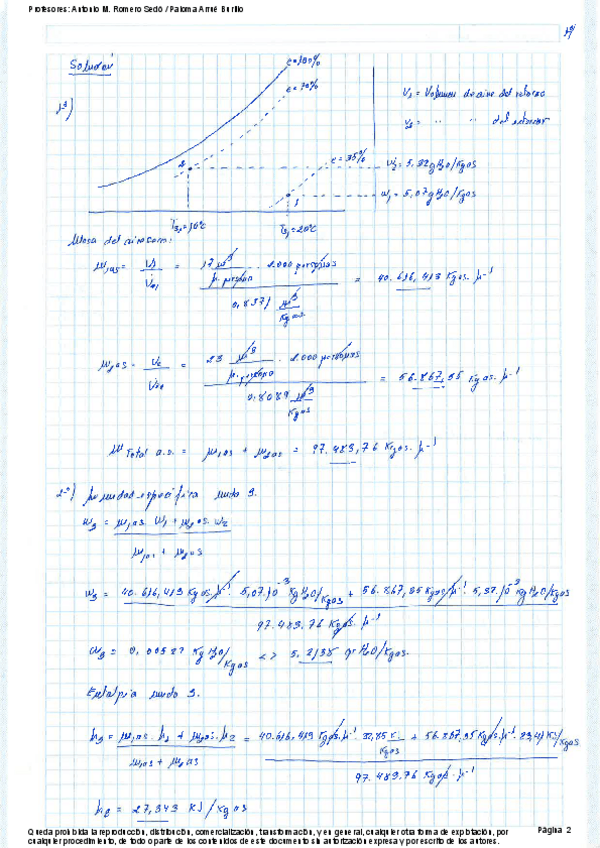 Profesores: Antonio M. Romero Sedó / Paloma Arrué Burillo
Solución
1º)
e=100%
e=70%
e=35%
V1 = Volumen de aire del
V2 = " " del exterior
W2 = 5,32 gH2O/Kgas
W1 = 5,07 gH2O/Kgas
2
1
Ts2=10ºC
Ts1=20ºC
Masa del aire seco:
m1as = V1 / Ve1 = 17 m³ / h. persona · 2.000 personas / 0,8371 m³/Kgas = 40.616,413 Kgas. h-1
m2as = V2 / Ve2 = 23 m³ / h. persona · 2.000 personas / 0,8089 m³/Kgas = 56.867,35 Kgas. h-1
m Total a.s. = m1as + m2as = 97.483,76 Kgas. h-1
2º) humedad específica nudo 3.
W3 = m1as W1 + m2as. W2 / m1as + m2as
W3 = 40.616,413 Kgas/h-1 · 5,07·10-3 KgH2O/Kgas + 56.867,35 Kgas/h-1 · 5,32·10-3 KgH2O/Kgas
97.483,76 Kgas. h-1
W3 = KgH2O/Kgas <> 5,2138 gr H2O/Kgas.
Entalpia nudo 3.
h3 = m1as · h1 + m2as · h2 / m1as + m2as = 40.616,413 Kgas. h-1 · Kgas + 56.867,35 Kgas. h-1 · KJ/Kgas
97.483,76 Kgas · h-1
h3 = 27,343 KJ/Kgas
Queda prohibida la reproducción, distribución, comercialización, transformación, y en general, cualquier otra forma de explotación, por
cualquier procedimiento, de todo o parte de los contenidos de este documento sin autorización expresa y por escrito de los autores.
Página 2